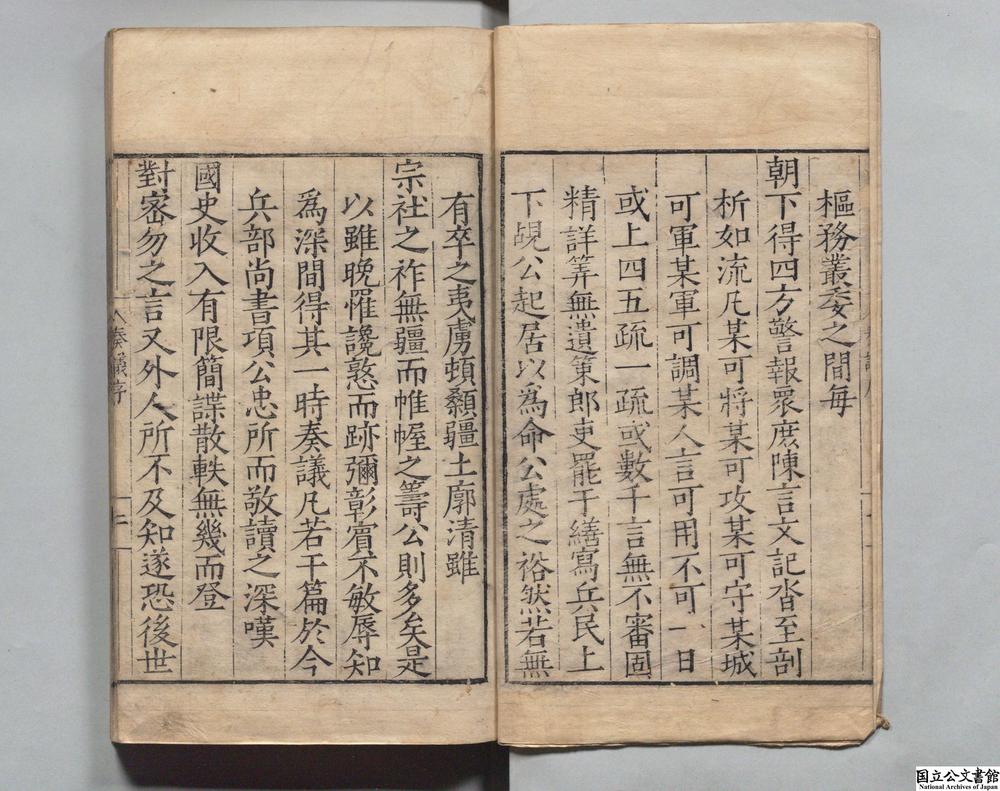 樞務叢委之間每
朝下得四方警報衆庶陳言文記沓至剖
析如流凡某可將某可攻某可守某城
可軍某軍可調某人言可用不可一日
或上四五疏一疏或數千言無不審固
精詳筭無遺策郎吏罷于繕寫兵民上
下覘公起居以爲命公處之裕然若無
有卒之夷虜頓顙疆土廓清雖
宗社之祚無疆而帷幄之籌公則多矣是
以雖晚罹讒慝而跡彌彰賓不敏辱知
爲深間得其一時奏議凡若干篇於今
兵部尚書項公忠所而敬讀之深嘆
國史收入有限簡諜散軼無幾而登
對密勿之言又外人所不及知遂恐後世
奏議序
二
国立公文書館
National Archives of Japan